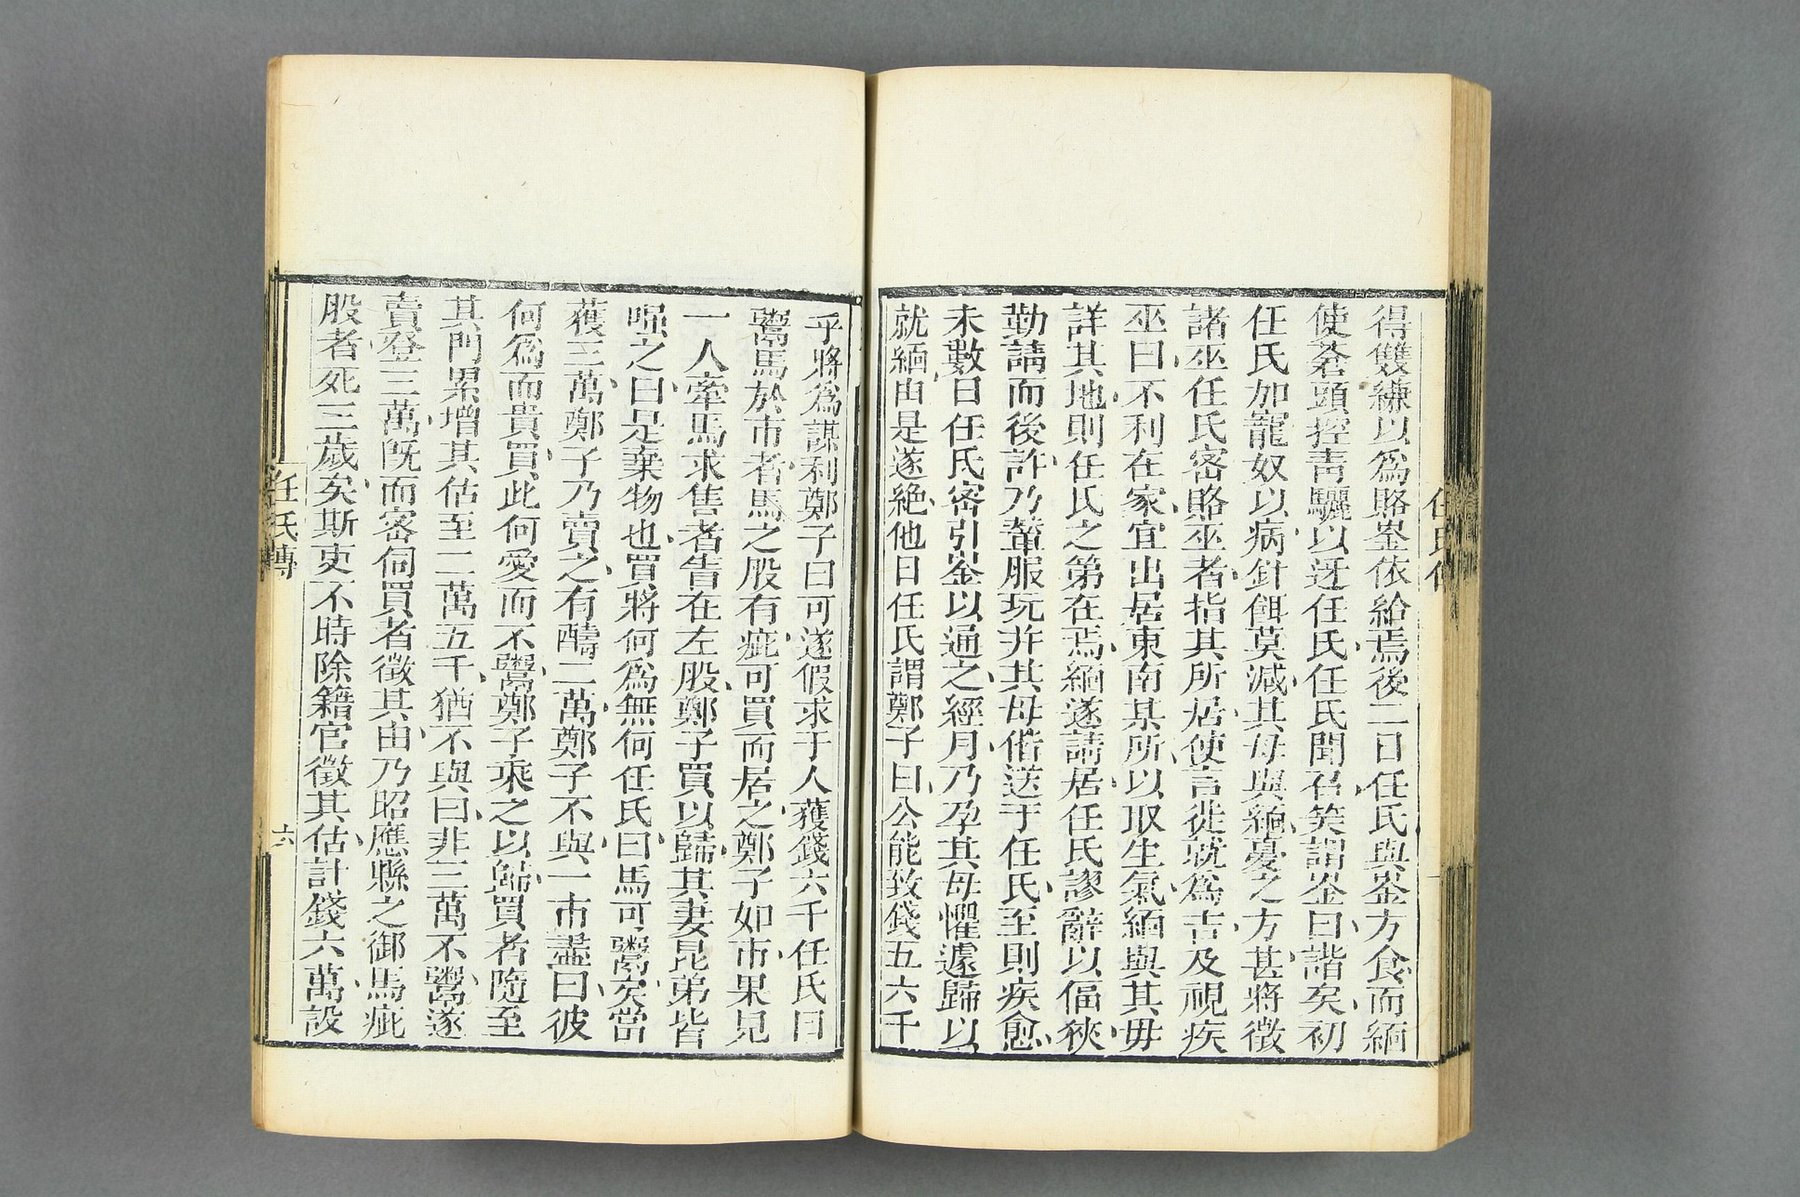 得雙縑以爲賂崟依給焉後二日任氏與崟方食而緬
使蒼頭控靑驪以迓任氏任氏聞召笑謂崟曰諧矣初
任氏加寵奴以病針餌莫減其母與緬憂之方甚將徵
諸巫任氏密賂巫者指其所居使言從就爲吉及視疾
巫曰不利在家宜出居東南某所以取生氣緬與其毋
詳其地則任氏之第在焉緬遂請居任氏謬辭以偪狹
勤請而後許乃輦服玩并其母偕送于任氏至則疾愈
未數日任氏密引崟以通之經月乃孕其母懼遽歸以
就緬由是遂絶他日任氏謂鄭子曰公能致錢五六千
乎將爲謀利鄭子曰可遂假求于人獲錢六千任氏曰
鬻馬於市者馬之股有疵可買而居之鄭子如市果見
一人牽馬求售者眚在左股鄭子買以歸其妻昆弟皆
嗤之曰是棄物也買將何爲無何任氏曰馬可鬻矣當
獲三萬鄭子乃賣之有酬二萬鄭子不與一市盡曰彼
何爲而貴買此何愛而不鬻鄭子乘之以歸買者隨至
其門累增其估至二萬五千猶不與曰非三萬不鬻遂
賣登三萬旣而密伺買者徵其由乃昭應縣之御馬疵
股者死三歲矣斯吏不時除籍官徵其估計錢六萬設
任氏傳
六